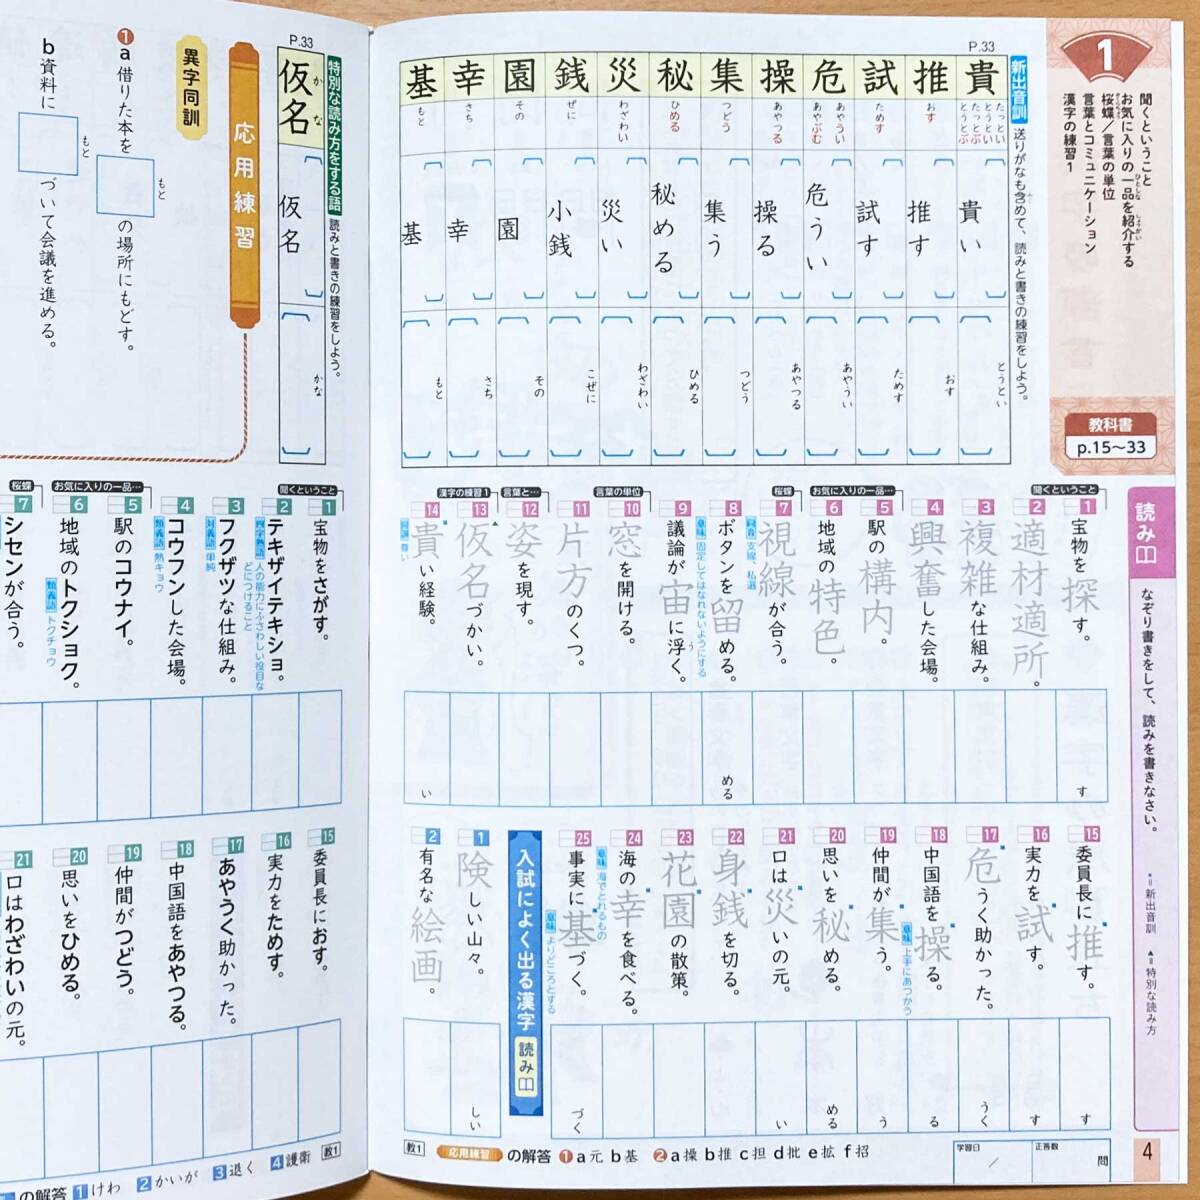 1
聞くということ
お気に入りの一品を紹介する
桜蝶/言葉の単位
言葉とコミュニケーション
漢字の練習1
教科書
p.15〜33
P.33
新出音訓 送りがなも含めて、読みと書きの練習をしよう。
貴 たっとい とうとい たっとぶ とうとぶ 貴い とうとい
推 おす 推す おす
試 ためす 試す ためす
危 あやうい あやぶむ 危うい あやうい
操 あやつる 操る あやつる
集 つどう 集う つどう
秘 ひめる 秘める ひめる
災 わざわい 災い わざわい
銭 ぜに 小銭 こぜに
園 その 園 その
幸 さち 幸 さち
基 もと 基 もと
P.33
特別な読み方をする語 読みと書きの練習をしよう。
仮名 かな 仮名 かな
応用練習
異字同訓
1 a 借りた本を もと の場所にもどす。
b 資料に もと づいて会議を進める。
読み なぞり書きをして、読みを書きなさい。
■=新出音訓 ▲=特別な読み方
聞くということ
1 宝物を探す。 す
2 適材適所。
3 複雑な仕組み。
4 興奮した会場。
お気に入りの一品…
5 駅の構内。
6 地域の特色。
桜蝶
7 視線が合う。 同音 支線、私選
8 ボタンを留める。 意味 固定してはなれないようにする める
9 議論が宙に浮く。
言葉の単位
10 窓を開ける。
11 片方のくつ。
言葉と…
12 姿を現す。
漢字の練習1
13 仮名づかい。
14 貴い経験。 い
15 委員長に推す。 す
16 実力を試す。 す
17 危うく助かった。 うく
18 中国語を操る。 意味 上手にあつかう る
19 仲間が集う。 う
20 思いを秘める。 める
21 口は災いの元。
22 身銭を切る。
23 花園の散策。
24 海の幸を食べる。 意味 海でとれるもの
25 事実に基づく。 意味 よりどころとする づく
入試によく出る漢字 読み
1 険しい山々。 しい
2 有名な絵画。
教1 応用練習 の解答 1 a元 b基 2 a操 b推 c担 d批 e拡 f招
学習日 /
正答数 問
4
聞くということ
1 宝物をさがす。
2 テキザイテキショ。 四字熟語 人の能力にふさわしい役目などにつけること
3 フクザツな仕組み。 対義語 単純
4 コウフンした会場。 類義語 熱キョウ
お気に入りの一品…
5 駅のコウナイ。
6 地域のトクショク。 類義語 トクチョウ
桜蝶
7 シセンが合う。
15 委員長におす。
16 実力をためす。
17 あやうく助かった。
18 中国語をあやつる。
19 仲間がつどう。
20 思いをひめる。
21 口はわざわいの元。
の解答 1 けわ 2 かいが 3 退く 4 護衛 教1